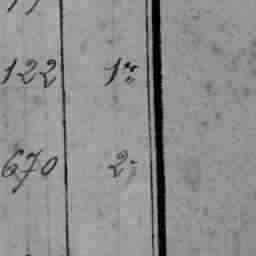 122 1
670 2